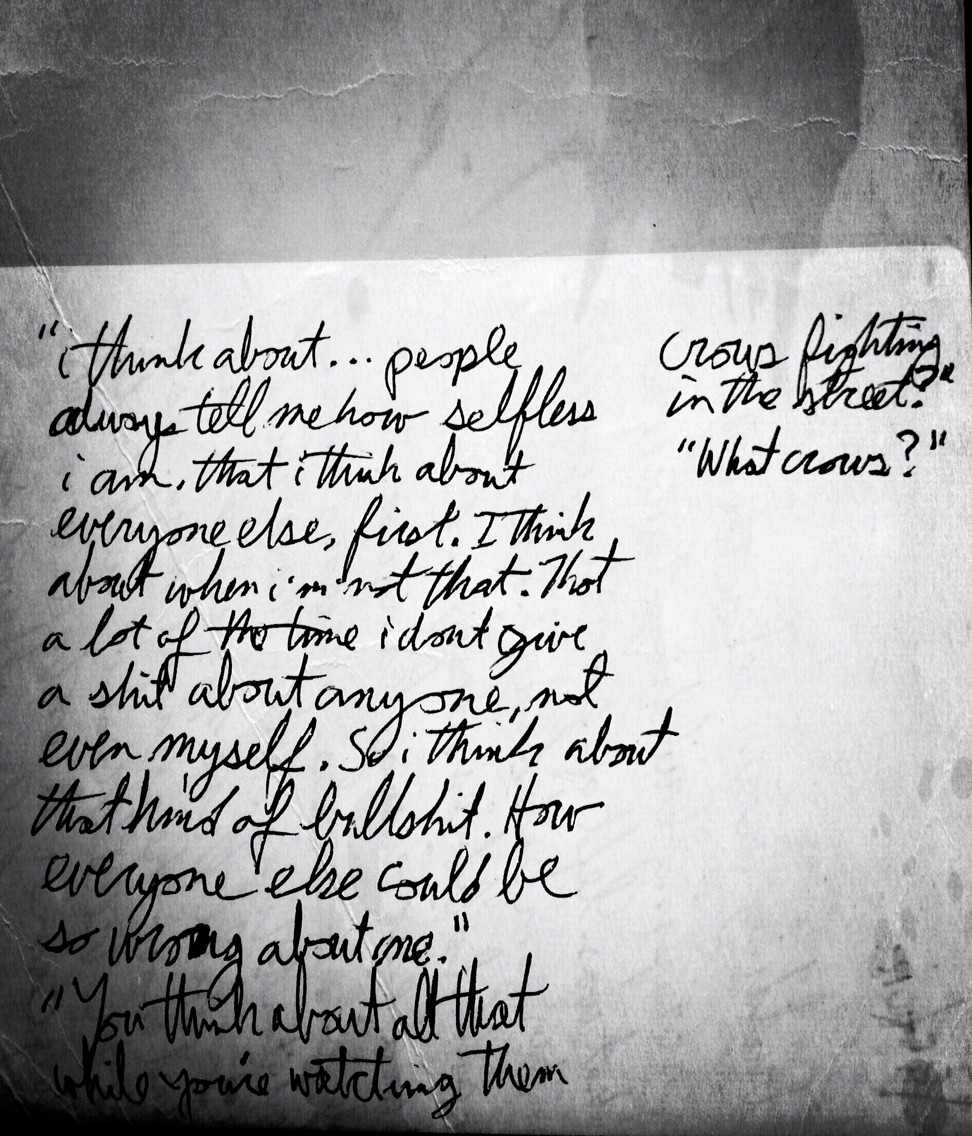 "i think about... people
always tell me how selfless
i am. that i think about
everyone else, first. I think
about when i'm not that. That
a lot of the time i dont give
a shit about anyone, not
even myself. So i think about
that kind of bullshit. How
everyone else could be
so wrong about me."
"You think about all that
while you're watching them
crows fighting
in the street?"
"What crows?"